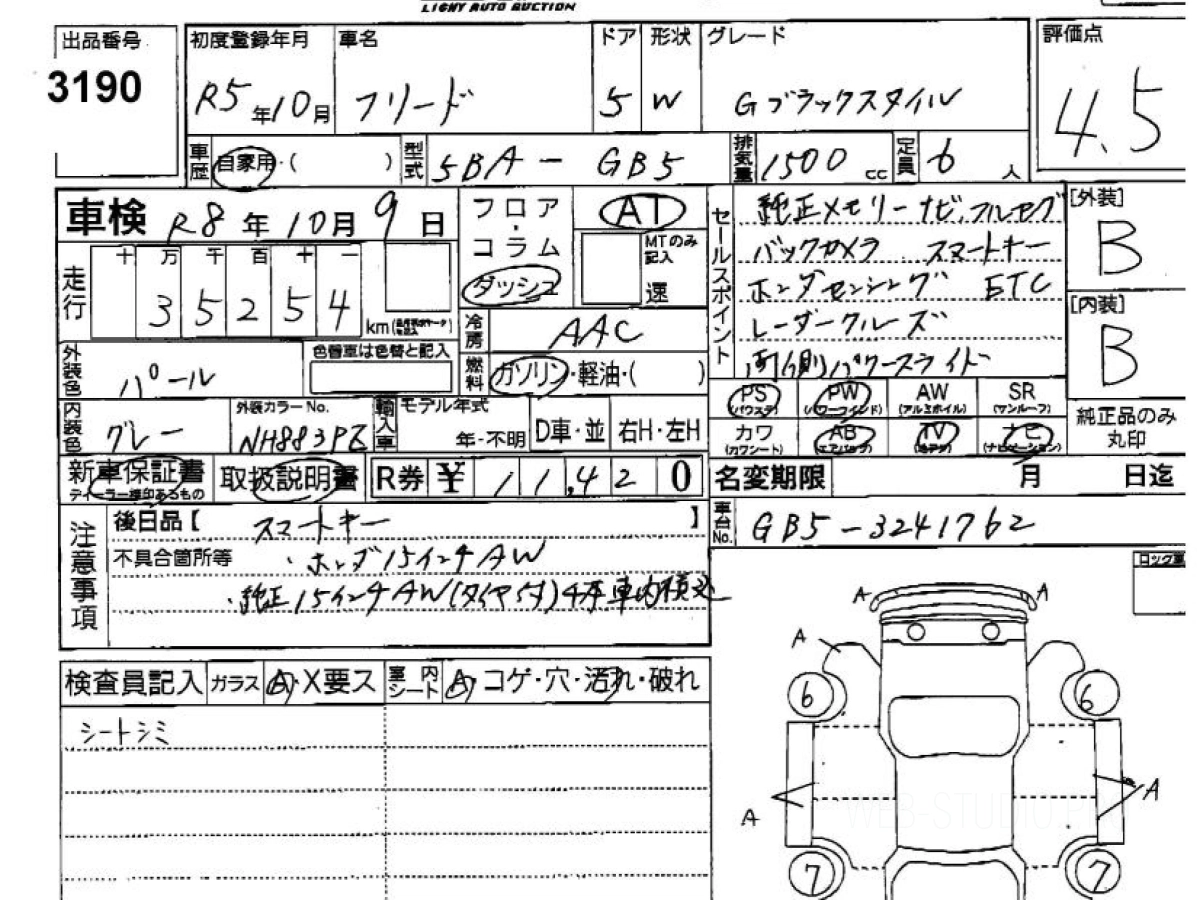 LIGHY AUTO AUCTION
出品番号 3190
初度登録年月 R5年10月
車名 フリード
ドア 5
形状 W
グレード Gブラックスタイル
評価点 4.5
車歴 自家用・( )
型式 5BA - GB5
排気量 1500 cc
定員 6 人
車検 R8年10月9日
フロア・コラム ダッシュ
AT
MTのみ記入 速
セールスポイント
純正メモリーナビ、フルセグ
バックカメラ スマートキー
ホンダセンシング ETC
レーダークルーズ
両側パワースライド
[外装] B
[内装] B
走行 十 万 千 百 十 一
35254 km
冷房 AAC
外装色 パール
色替車は色替と記入
燃料 ガソリン・軽油・( )
PS (パワステ) PW (パワーウインド) AW (アルミホイル) SR (サンルーフ)
カワ (カワシート) AB (エアバック) TV (地デジ) ナビ (ナビゲーション)
純正品のみ丸印
内装色 グレー
外装カラーNo. NH883PZ
輸入車 モデル年式 年-不明
D車・並 右H・左H
新車保証書 ディーラー押印あるもの
取扱説明書
R券 ¥ 11,420
名変期限 月 日迄
注意事項
後日品【 スマートキー 】
不具合箇所等 ・ホンダ15インチAW
・純正15インチAW(タイヤ付)4本車内積込
車台No. GB5-3241762
ロック車
検査員記入 ガラス A・X要ス
室内シート A コゲ・穴・汚れ・破れ
シートシミ
A A
A
6 6
A A
7 7
WEB-STUDIO.P